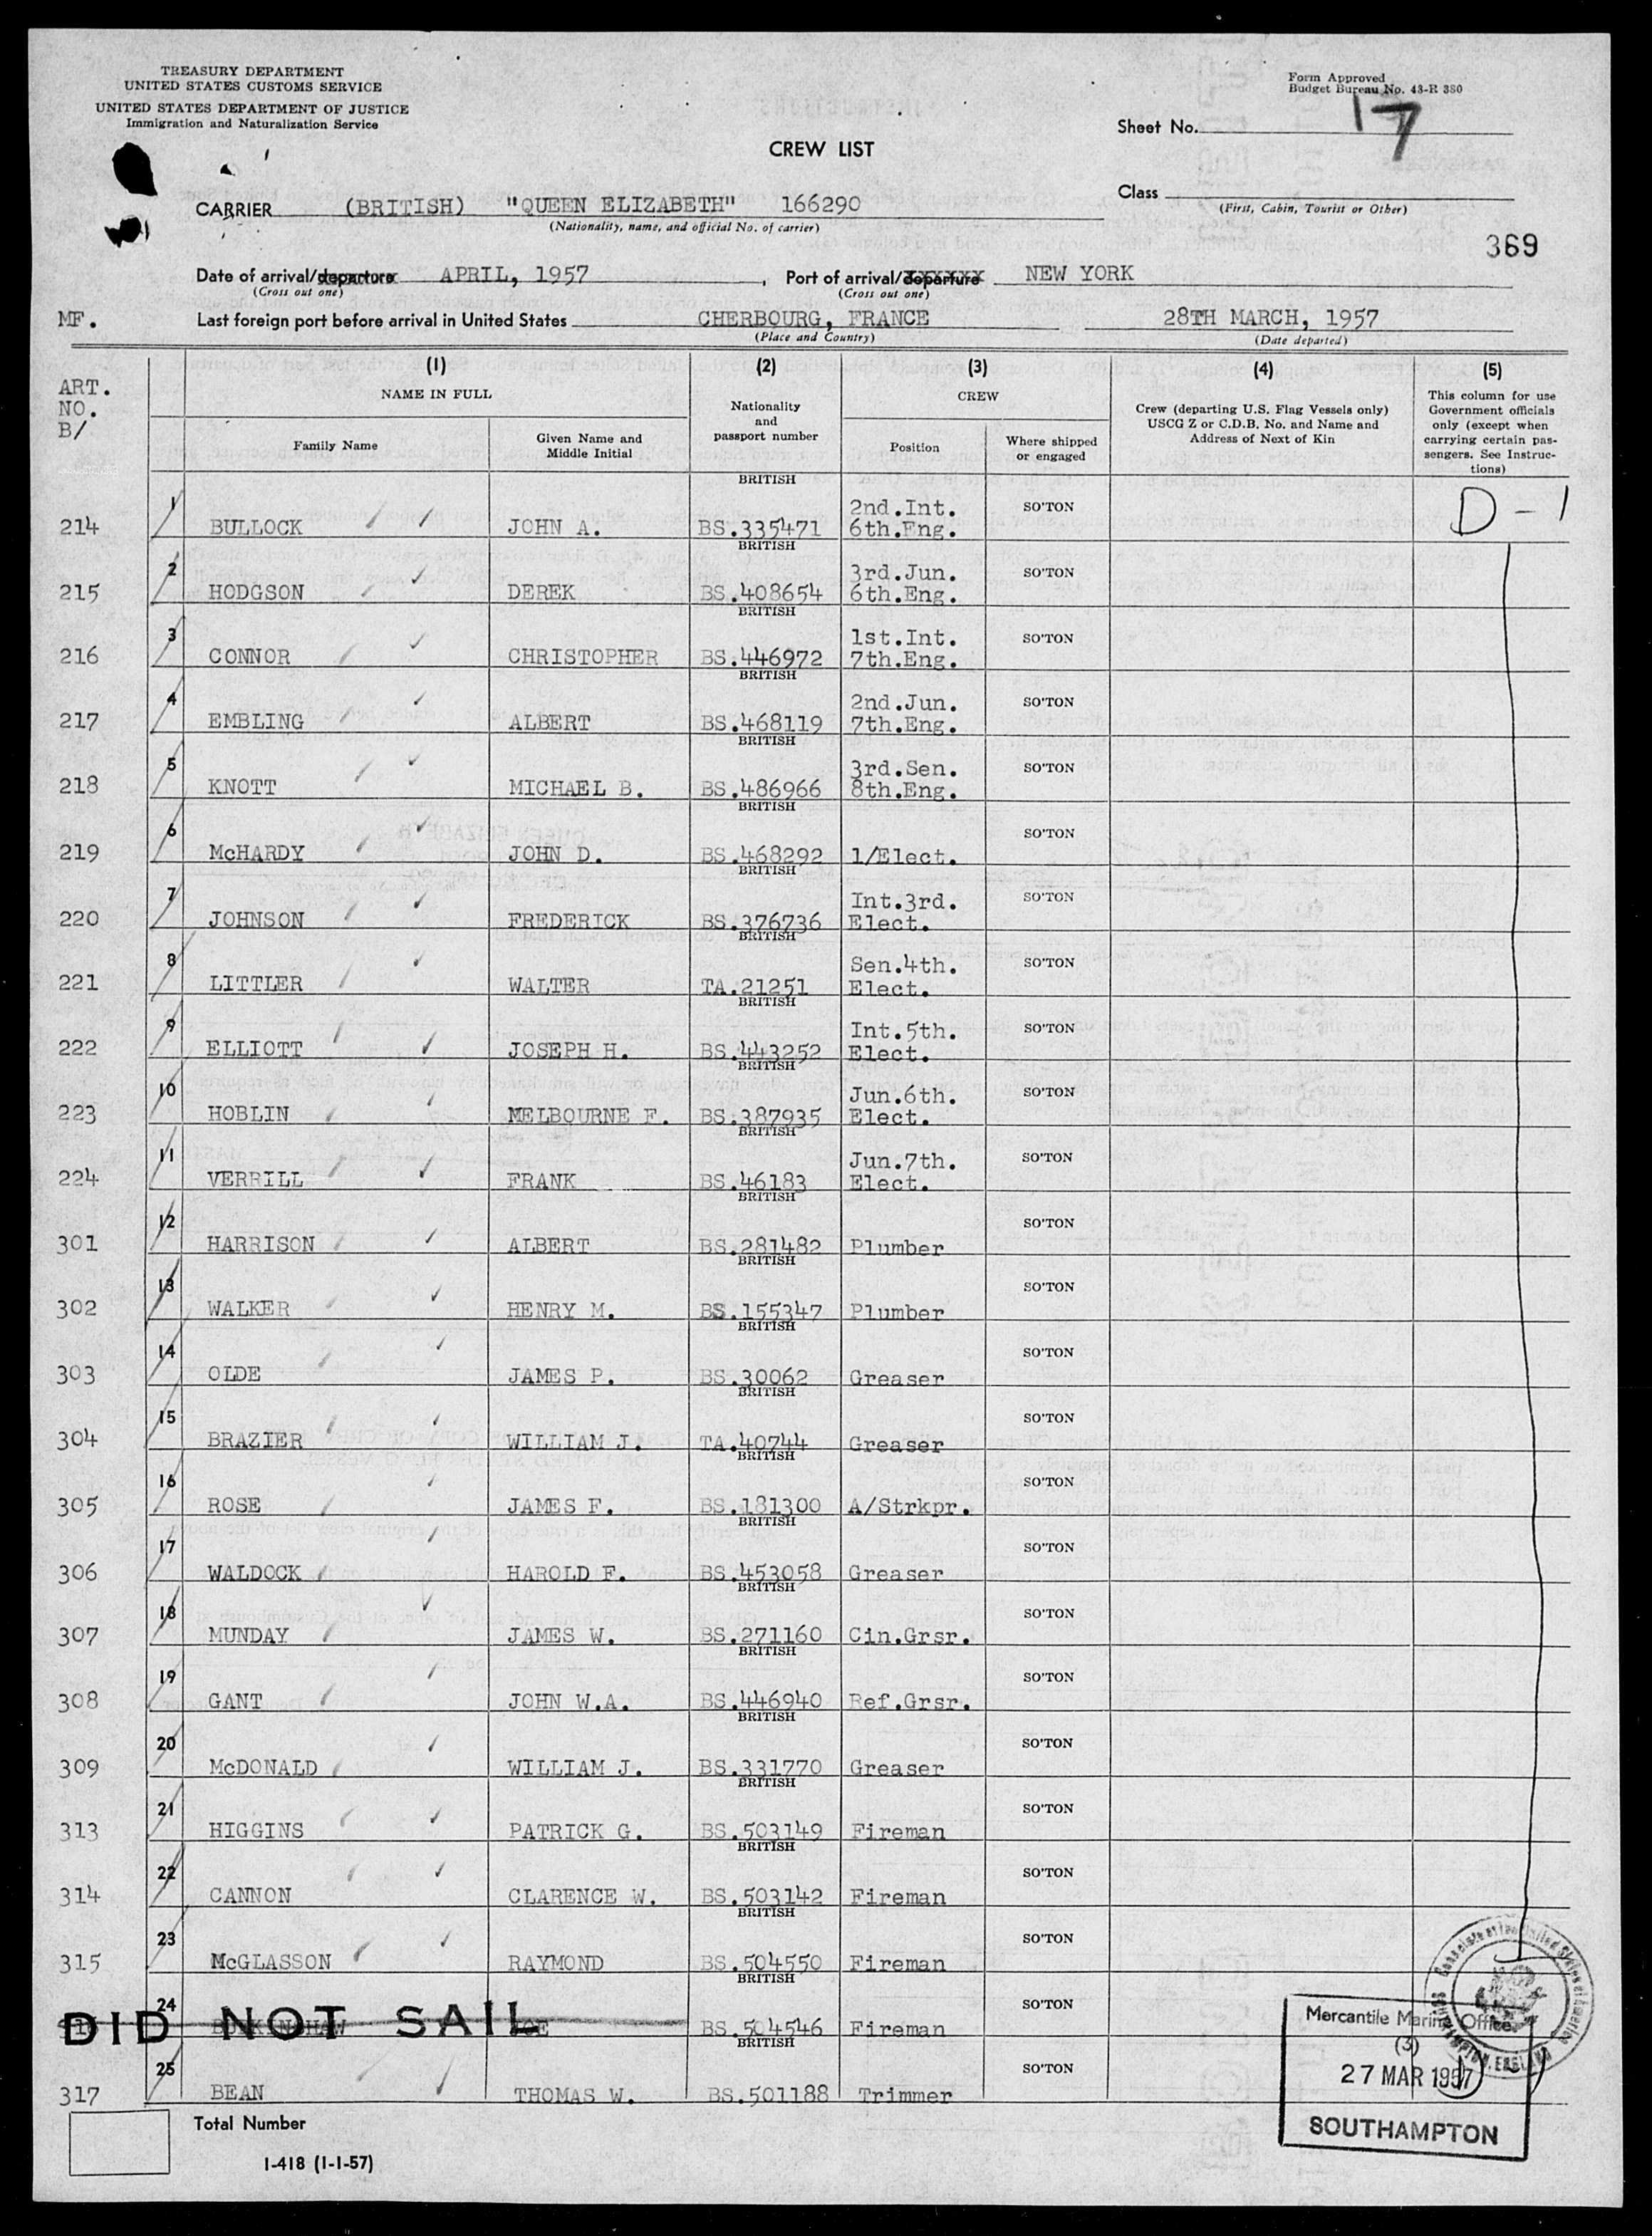 TREASURY DEPARTMENT
UNITED STATES CUSTOMS SERVICE
UNITED STATES DEPARTMENT OF JUSTICE
Immigration and Naturalization Service
Form Approved
Budget Bureau No. 43-R 380
Sheet No. 17
CREW LIST
Class
(First, Cabin, Tourist or Other)
CARRIER (BRITISH) "QUEEN ELIZABETH" 166290
(Nationality, name, and official No. of carrier)
369
Date of arrival/departure APRIL, 1957, Port of arrival/departure NEW YORK
(Cross out one) (Cross out one)
MF. Last foreign port before arrival in United States CHERBOURG, FRANCE 28TH MARCH, 1957
(Place and Country) (Date departed)
ART. NO. B/
(1) (2) (3) (4) (5)
NAME IN FULL
Family Name
Given Name and Middle Initial
Nationality and passport number
CREW
Position
Where shipped or engaged
Crew (departing U.S. Flag Vessels only)
USCG Z or C.D.B. No. and Name and
Address of Next of Kin
This column for use
Government officials
only (except when
carrying certain pas-
sengers. See Instruc-
tions)
D-1
214 1 BULLOCK JOHN A. BRITISH BS.335471 2nd.Int. 6th.Eng. SO'TON
215 2 HODGSON DEREK BRITISH BS.408654 3rd.Jun. 6th.Eng. SO'TON
216 3 CONNOR CHRISTOPHER BRITISH BS.446972 1st.Int. 7th.Eng. SO'TON
217 4 EMBLING ALBERT BRITISH BS.468119 2nd.Jun. 7th.Eng. SO'TON
218 5 KNOTT MICHAEL B. BRITISH BS.486966 3rd.Sen. 8th.Eng. SO'TON
219 6 McHARDY JOHN D. BRITISH BS.468292 1/Elect. SO'TON
220 7 JOHNSON FREDERICK BRITISH BS.376736 Int.3rd. Elect. SO'TON
221 8 LITTLER WALTER BRITISH TA.21251 Sen.4th. Elect. SO'TON
222 9 ELLIOTT JOSEPH H. BRITISH BS.443252 Int.5th. Elect. SO'TON
223 10 HOBLIN MELBOURNE F. BRITISH BS.387935 Jun.6th. Elect. SO'TON
224 11 VERRILL FRANK BRITISH BS.46183 Jun.7th. Elect. SO'TON
301 12 HARRISON ALBERT BRITISH BS.281482 Plumber SO'TON
302 13 WALKER HENRY M. BRITISH BS.155347 Plumber SO'TON
303 14 OLDE JAMES P. BRITISH BS.30062 Greaser SO'TON
304 15 BRAZIER WILLIAM J. BRITISH TA.40744 Greaser SO'TON
305 16 ROSE JAMES F. BRITISH BS.181300 A/Strkpr. SO'TON
306 17 WALDOCK HAROLD F. BRITISH BS.453058 Greaser SO'TON
307 18 MUNDAY JAMES W. BRITISH BS.271160 Cin.Grsr. SO'TON
308 19 GANT JOHN W.A. BRITISH BS.446940 Ref.Grsr. SO'TON
309 20 McDONALD WILLIAM J. BRITISH BS.331770 Greaser SO'TON
313 21 HIGGINS PATRICK G. BRITISH BS.503149 Fireman SO'TON
314 22 CANNON CLARENCE W. BRITISH BS.503142 Fireman SO'TON
315 23 McGLASSON RAYMOND BRITISH BS.504550 Fireman SO'TON
24 DID NOT SAIL BRITISH BS.504546 Fireman SO'TON
317 25 BEAN THOMAS W. BRITISH BS.501188 Trimmer SO'TON
Mercantile Marine Office
(3)
27 MAR 1957
SOUTHAMPTON
Total Number
I-418 (1-1-57)